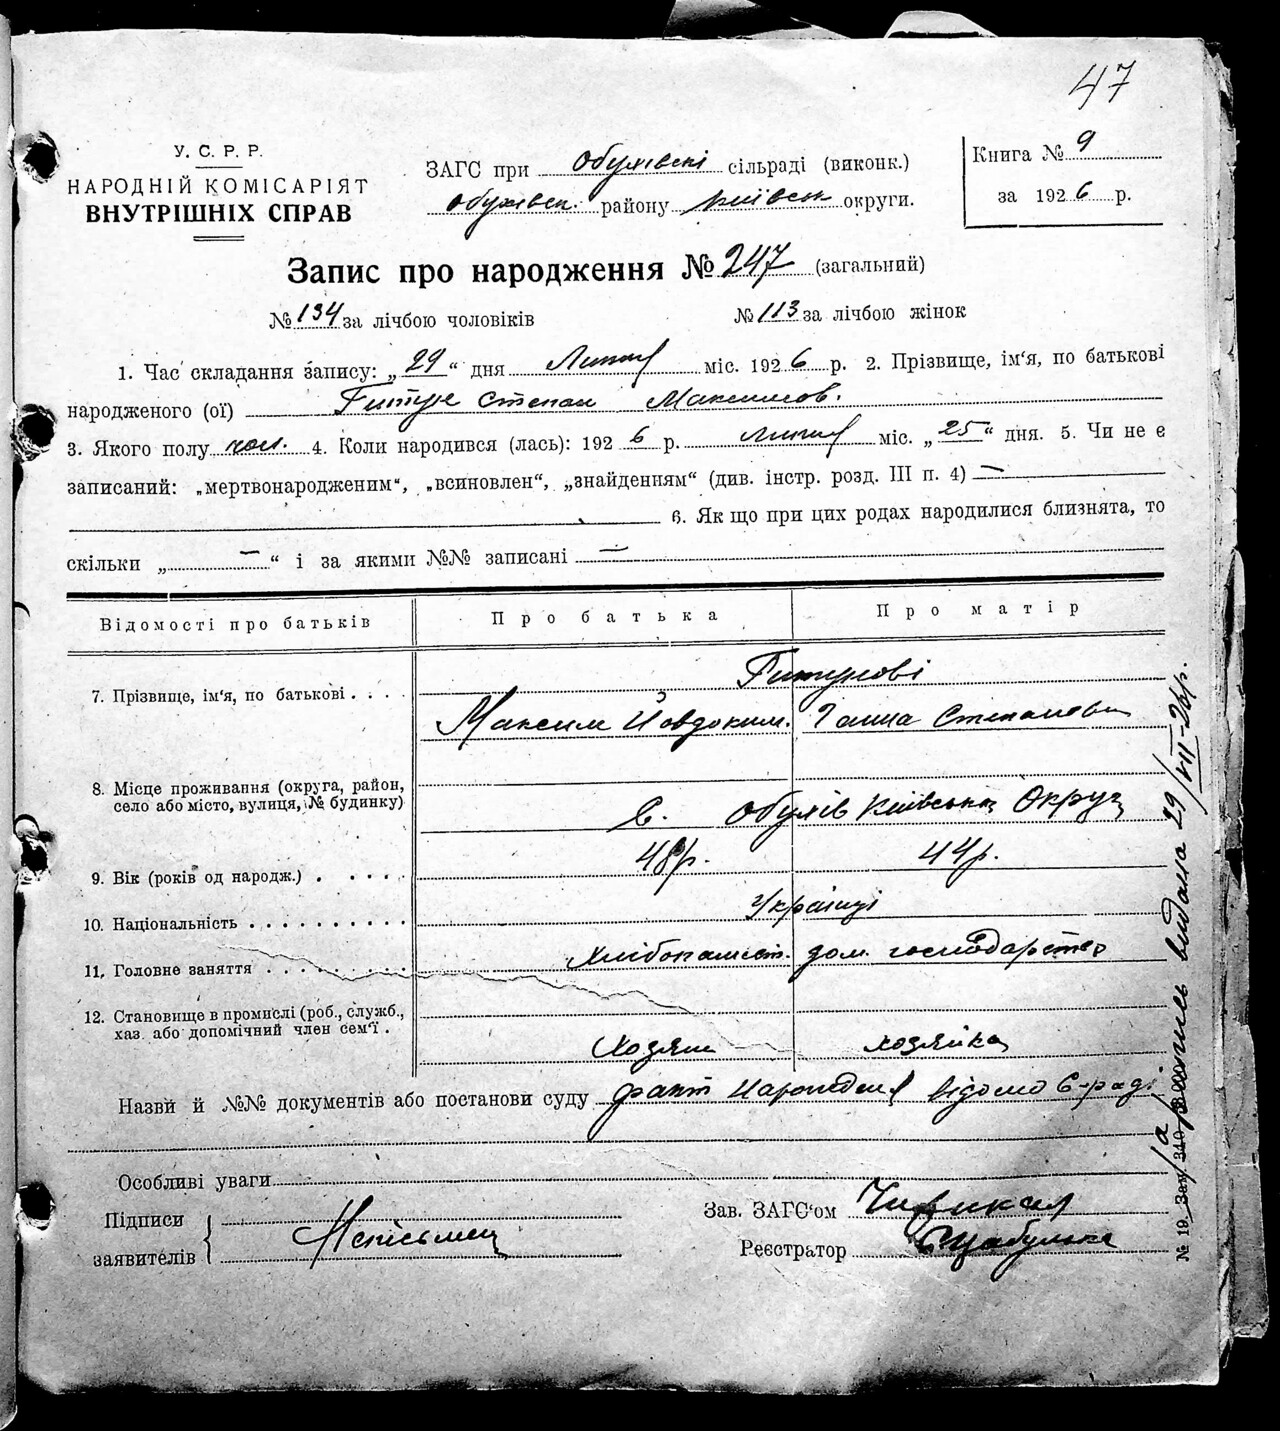 47
У. С. Р. Р.
НАРОДНІЙ КОМІСАРІЯТ
ВНУТРІШНІХ СПРАВ
ЗАГС при Обухівскі сільраді (виконк.)
Обухівск. району Київськ округи.
Книга № 9
за 1926 р.
Запис про народження № 247 (загальний)
№ 134 за лічбою чоловіків № 113 за лічбою жінок
1. Час складання запису: „29“ дня Липня міс. 1926 р. 2. Прізвище, ім'я, по батькові
народженого (ої) Степан Максимов.
3. Якого полу чол. 4. Коли народився (лась): 1926 р. Липня міс. „25“ дня. 5. Чи не є
записаний: „мертвонародженим“, „всиновлен“, „знайденням“ (див. інстр. розд. III п. 4) —
6. Як що при цих родах народилися близнята, то
скільки „—“ і за якими №№ записані —
Відомості про батьків Про батька Про матір
7. Прізвище, ім'я, по батькові . . . .
Максим Йовдоким. Ганна Степановн
8. Місце проживання (округа, район,
село або місто, вулиця, № будинку)
с. Обухів Київська Округа
9. Вік (років од народж.) . . . . . 48р. 44р.
10. Національність . . . . . . . . . . Українці
11. Головне заняття . . . . . . . . . дом. господарство
12. Становище в промислі (роб., служб.,
хаз. або допомічний член сем'ї .
Хозяин хозяйка
Назви й №№ документів або постанови суду факт народження відомо С-раді
Особливі уваги
Підписи
заявителів
Неписьмен
Зав. ЗАГС'ом
Реєстратор
№ 19. Зак. 310
випись видана 29/VII-26р.